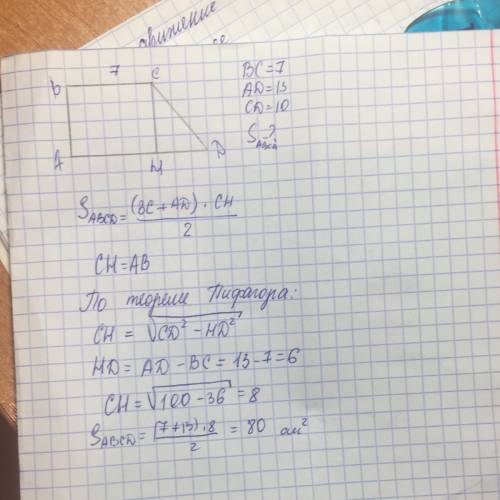 движение
7
B
C
A
H
D
BC=7
AD=13
CD=10
S ABCD ?
S ABCD = (BC+AD) · CH / 2
CH=AB
По теореме Пифагора:
CH = √CD² - HD²
HD = AD - BC = 13-7=6
CH = √100-36 = 8
S ABCD = (7+13)·8 / 2 = 80 см²